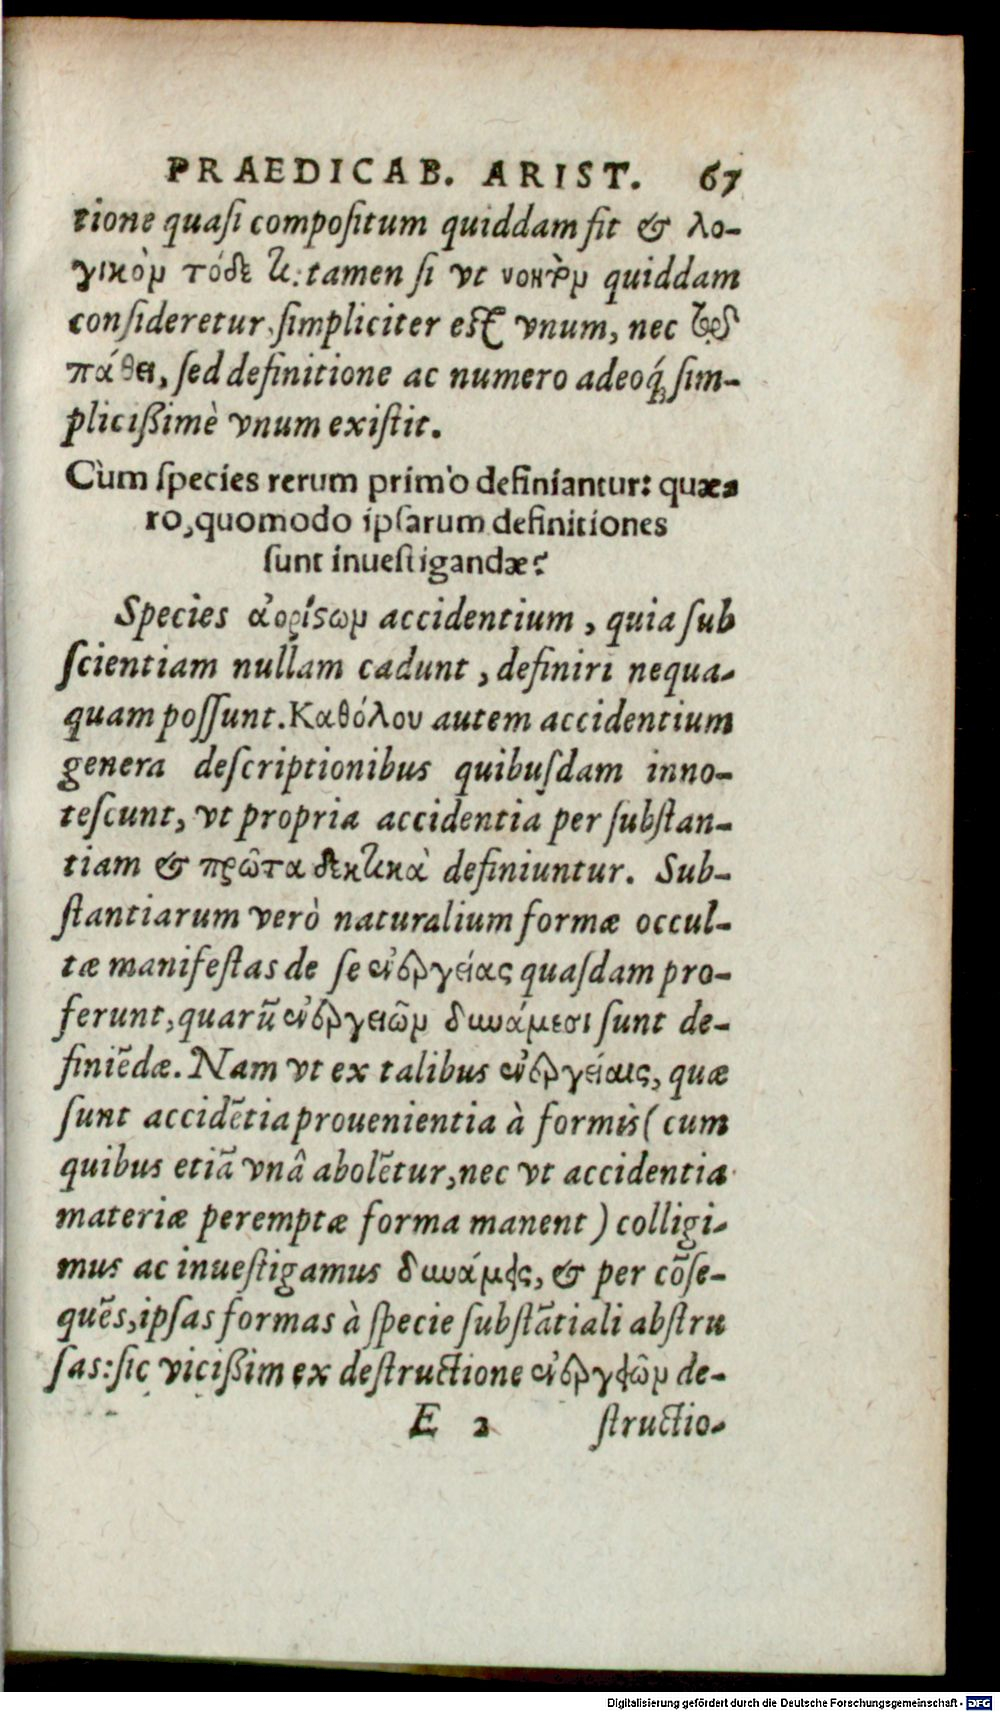 PRAEDICAB. ARIST. 67
tione quasi compositum quiddam sit & λο-
γικὸν τόδε τι: tamen si vt νοητὸν quiddam
consideretur, simpliciter est vnum, nec
πάθει, sed definitione ac numero adeoq́; sim-
plicißimè vnum existit.
Cùm species rerum primò definiantur: quæ-
ro, quomodo ipsarum definitiones
sunt inuestigandæ?
Species ἀορίϛων accidentium, quia sub
scientiam nullam cadunt, definiri nequa-
quam possunt. Καθόλου autem accidentium
genera descriptionibus quibusdam inno-
tescunt, vt propria accidentia per substan-
tiam & πρῶτα δεκτικὰ definiuntur. Sub-
stantiarum verò naturalium formæ occul-
tæ manifestas de se ἐνεργείας quasdam pro-
ferunt, quarũ ἐνεργειῶν δυνάμεσι sunt de-
finiẽdæ. Nam vt ex talibus ἐνεργείαις, quæ
sunt accidẽtia prouenientia à formis (cum
quibus etiã vnâ abolẽtur, nec vt accidentia
materiæ peremptæ forma manent) colligi-
mus ac inuestigamus δυνάμεις, & per cõse-
quẽs, ipsas formas à specie substãtiali abstru
sas: sic vicißim ex destructione ἐνεργειῶν de-
E 2 structio-
Digitalisierung gefördert durch die Deutsche Forschungsgemeinschaft - DFG